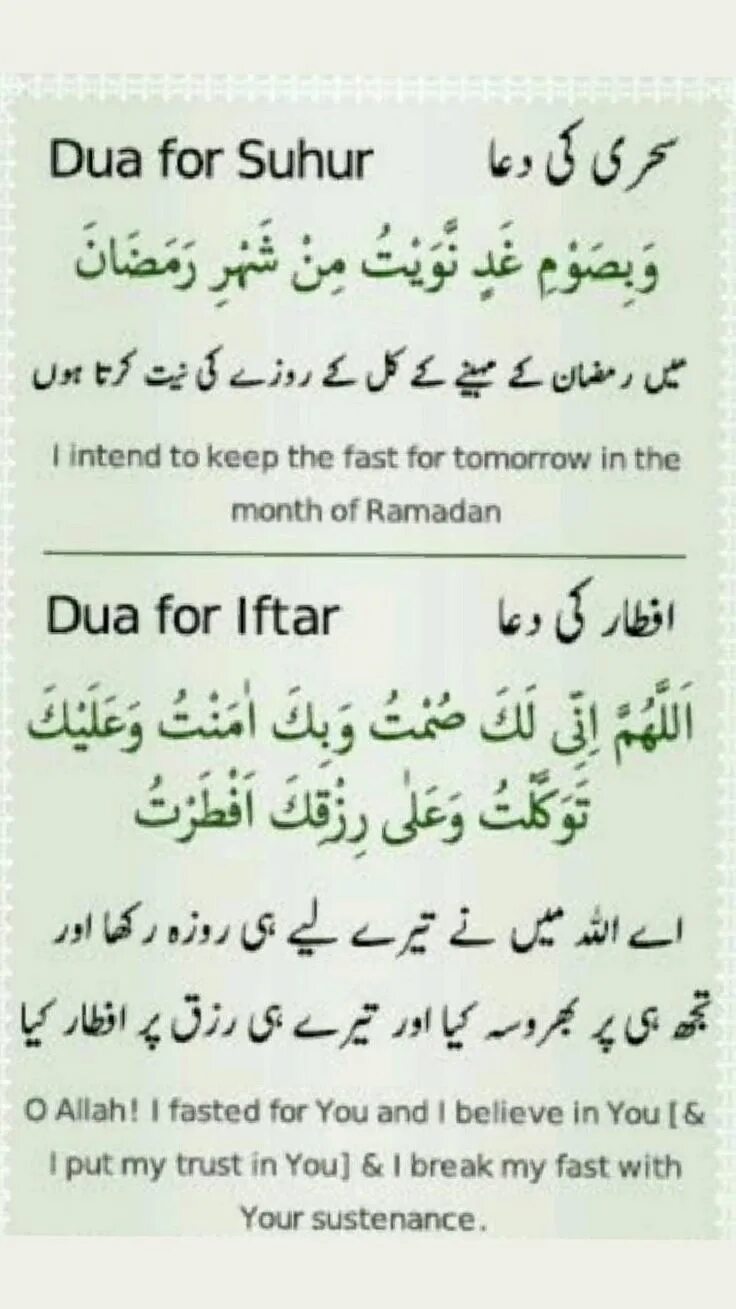 Dua for Suhur سحری کی دعا
وَبِصَوْمِ غَدٍ نَّوَيْتُ مِنْ شَهْرِ رَمَضَانَ
میں رمضان کے مہینے کے کل کے روزے کی نیت کرتا ہوں
I intend to keep the fast for tomorrow in the
month of Ramadan
Dua for Iftar افطار کی دعا
اَللَّهُمَّ اِنِّى لَكَ صُمْتُ وَبِكَ اٰمَنْتُ وَعَلَيْكَ
تَوَكَّلْتُ وَعَلٰى رِزْقِكَ اَفْطَرْتُ
اے اللہ میں نے تیرے لیے ہی روزہ رکھا اور
تجھ ہی پر بھروسہ کیا اور تیرے ہی رزق پر افطار کیا
O Allah! I fasted for You and I believe in You [&
I put my trust in You] & I break my fast with
Your sustenance.